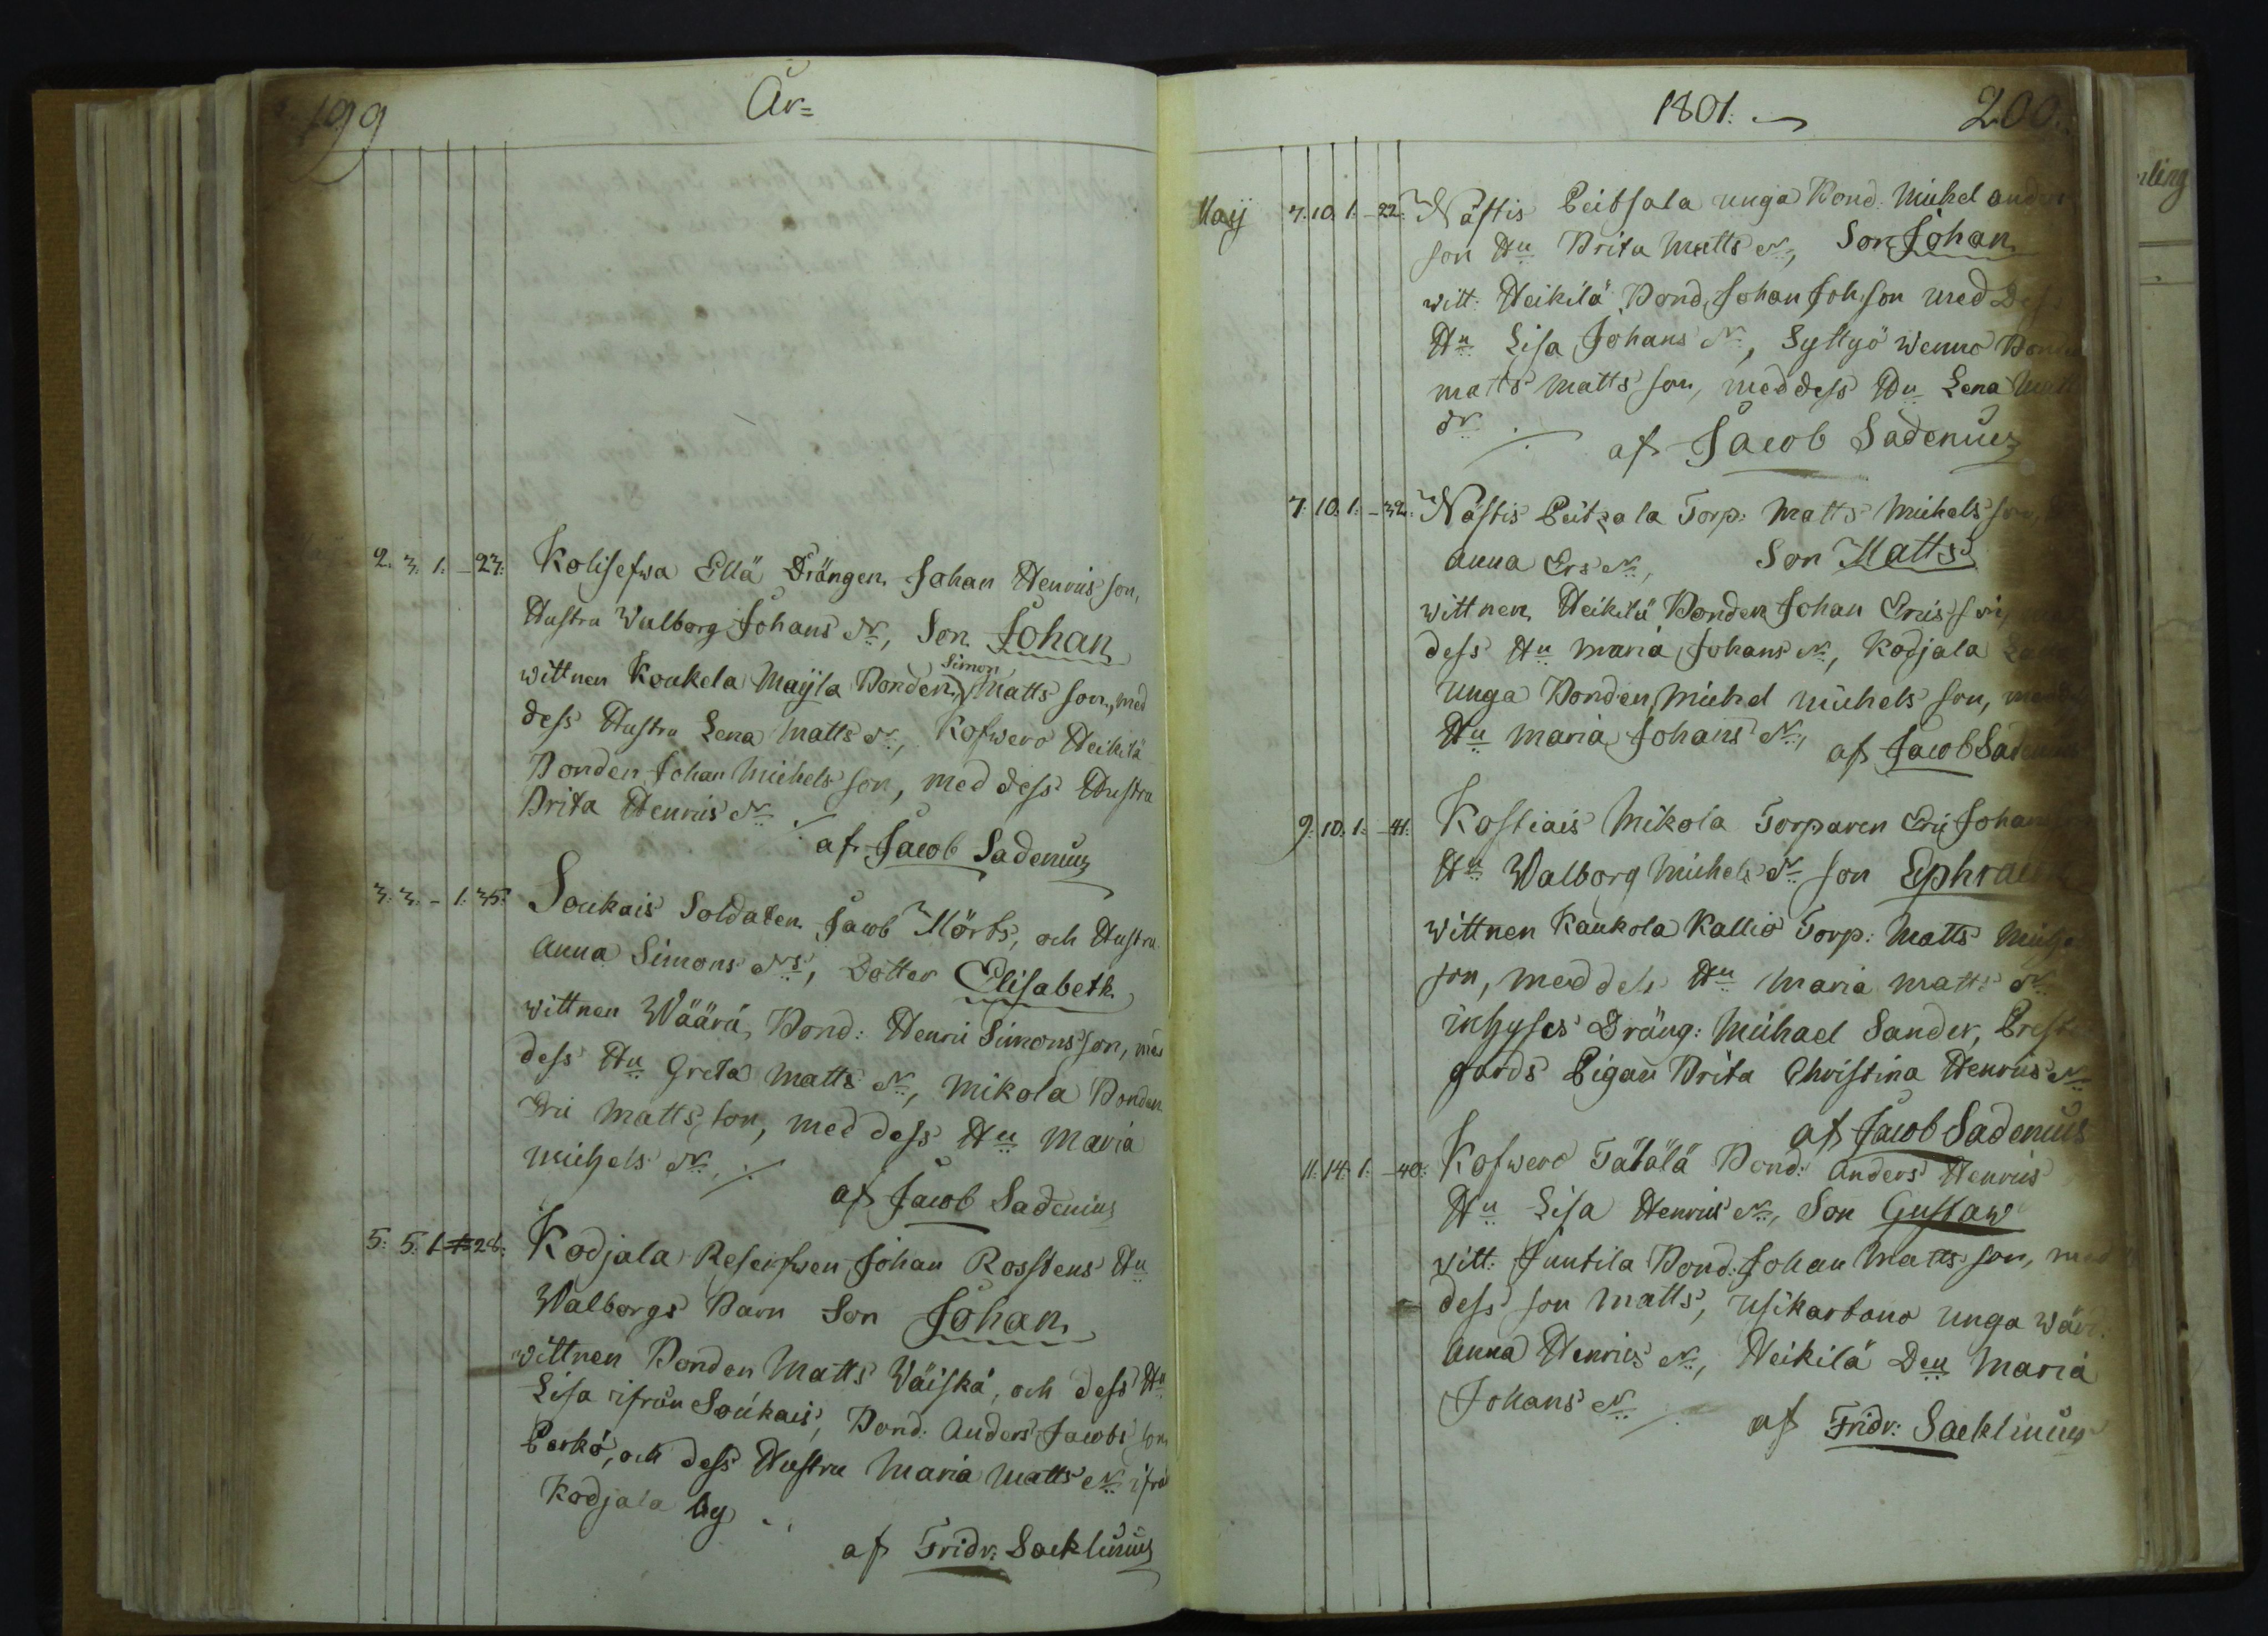 199
År=
Maij 2. 3. 1. – 23: Kolisefwa Ellä Drängen Johan Henrics son,
Hustru Walborg Johans dr, Son Johan
wittnen Koukela Maijla Bonden Simon Matts son, med
dess Hustru Lena Matts dr, Kofwero Heikilä
Bonden Johan Michels son, med dess Hustru
Brita Henrics dr
af Jacob Sadenius
3. 3. – 1. 35: Soukais Soldaten Jacob Mörts, och Hustru
Anna Simons dr, Dotter Elisabeth
wittnen Wäärä Bond: Henric Simons son, med
dess Hu Greta Matts dr, Mikola Bonden
Eric Matts son, med dess Hu Maria
Michels dr ./.
af Jacob Sadenius
5. 5. 1. 28: Kodjala Reserfwen Johan Rosstens Hu
Walborgs Barn Son Johan
wittnen Bonden Matts Wäiskä, och dess Hu
Lisa ifrån Soukais, Bond: Anders Jacobs son
Perkö, och dess Hustru Maria Matts dr ifrå
Kodjala by
af Fridr: Sacklinius
1801.
200.
Maij 7. 10. 1. – 22: Nästis Peitsala unga Bond: Michel anders
son Hu Brita Matts dr, Son Johan
witt: Heikilä Bond Johan Joh. son med Dess
Hu Lisa Johans dr, Syttyö Wenno Bonden
Matts Matts son, med dess Hu Lena Matts
dr ./.
af Jacob Sadenius
7. 10. 1. – 32: Nästis Peitsala Torp: Matts Michels son,
Anna Ers dr, Son Matts
wittnen Heikilä Bonden Johan Erics son,
dess Hu Maria Johans dr, Kodjala
unga Bonden Michel Michels son, med
Hu Maria Johans dr, af Jacob Sadenius
9. 10. 1. – 41: Kostiais Mikola Torparen Eric Johans
Hu Walborg Michels dr son Ephraim
wittnen Kaukola Kallio Torp: Matts Michels
son, med dess Hu Maria Matts dr
inhyses Dräng: Michael Sander, Prest
gårds Pigan Brita Christina Henrics dr
af Jacob Sadenius
11. 14. 1. – 40: Kofwero Tätälä Bond: Anders Henrics
Hu Lisa Henrics dr, Son Gustaw
witt: Juntila Bond: Johan Matts son, med
dess son Matts, Usikartano unga Wär.
Anna Henrics dr, Heikilä Den Maria
Johans dr ./.
af Fridr: Sacklinius